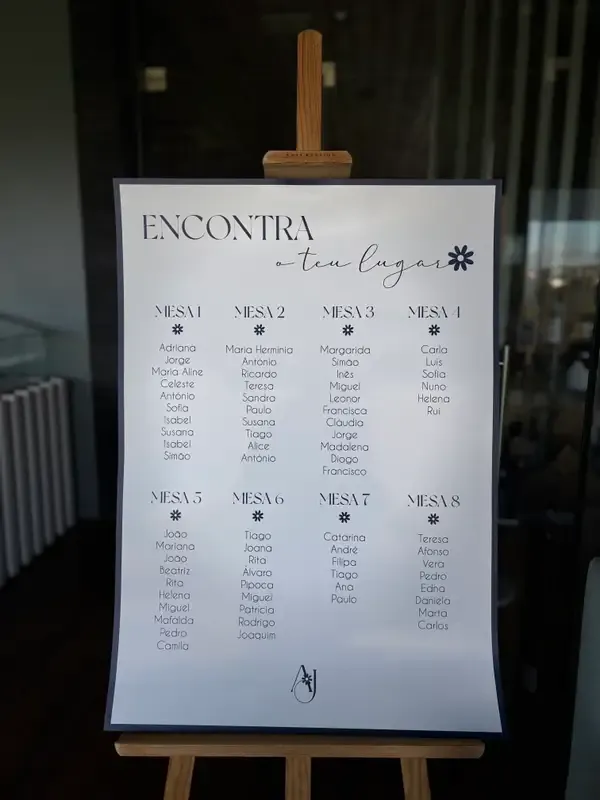 ENCONTRA
o teu lugar
MESA 1
Adriana
Jorge
Maria Aline
Celeste
António
Sofia
Isabel
Susana
Isabel
Simão
MESA 2
Maria Hermínia
António
Ricardo
Teresa
Sandra
Paulo
Susana
Tiago
Alice
António
MESA 3
Margarida
Simão
Inês
Miguel
Leonor
Francisca
Cláudia
Jorge
Madalena
Diogo
Francisco
MESA 4
Carla
Luís
Sofia
Nuno
Helena
Rui
MESA 5
João
Mariana
João
Beatriz
Rita
Helena
Miguel
Mafalda
Pedro
Camila
MESA 6
Tiago
Joana
Rita
Álvaro
Pipoca
Miguel
Patrícia
Rodrigo
Joaquim
MESA 7
Catarina
André
Filipa
Tiago
Ana
Paulo
MESA 8
Teresa
Afonso
Vera
Pedro
Edna
Daniela
Marta
Carlos
AJ